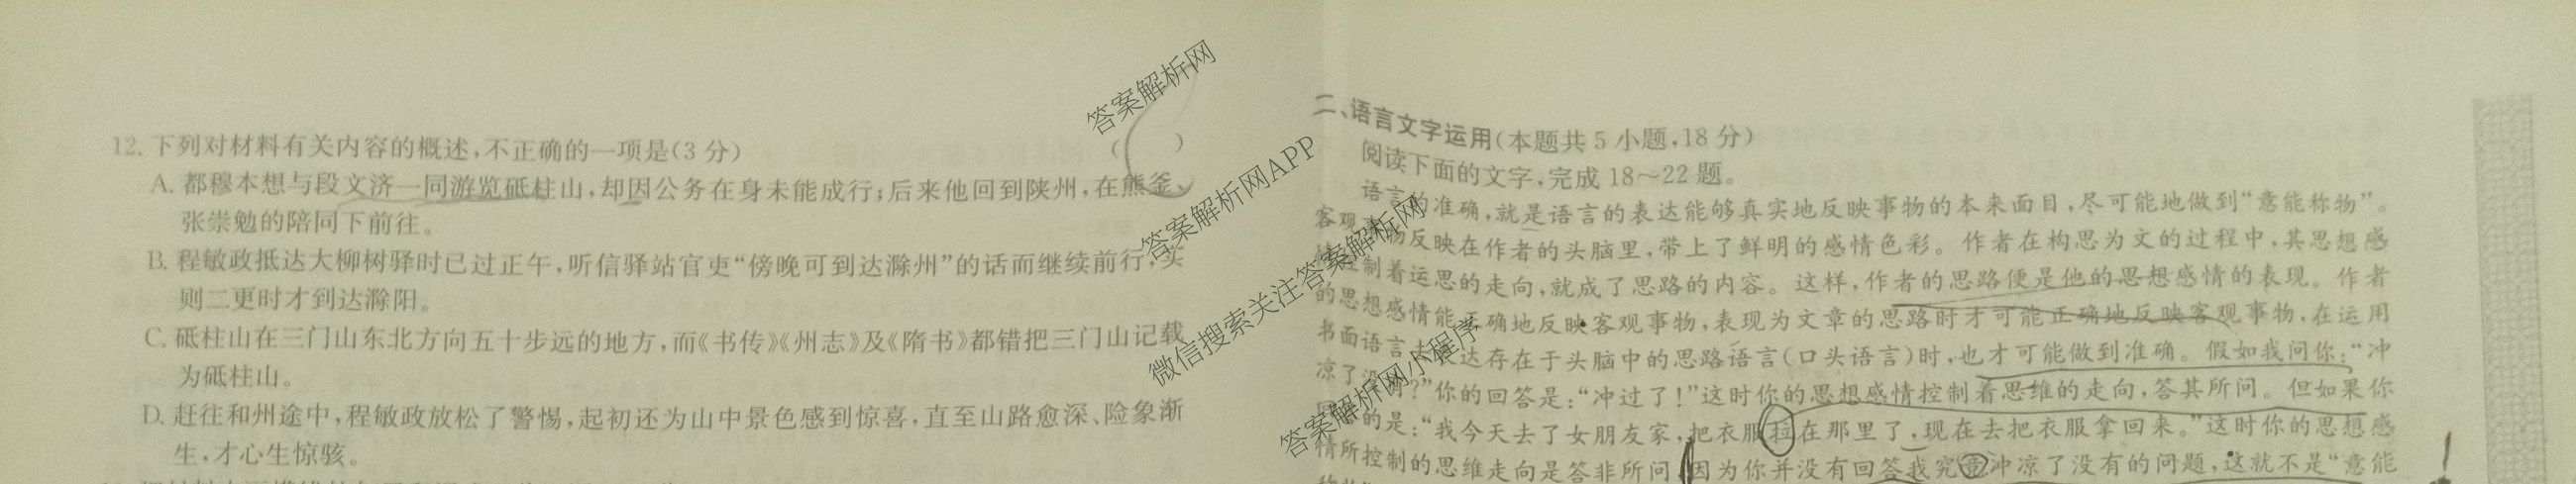 12. 下列对材料有关内容的概述,不正确的一项是(3 分) ( )
A. 都穆本想与段文济一同游览砥柱山,却因公务在身未能成行;后来他回到陕州,在熊釜、
张崇勉的陪同下前往。
B. 程敏政抵达大柳树驿时已过正午,听信驿站官吏“傍晚可到达滁州”的话而继续前行,实
则二更时才到达滁阳。
C. 砥柱山在三门山东北方向五十步远的地方,而《书传》《州志》及《隋书》都错把三门山记载
为砥柱山。
D. 赶往和州途中,程敏政放松了警惕,起初还为山中景色感到惊喜,直至山路愈深、险象渐
生,才心生惊骇。
二、语言文字运用(本题共 5 小题,18 分)
阅读下面的文字,完成 18～22 题。
语言的准确,就是语言的表达能够真实地反映事物的本来面目,尽可能地做到“意能称物”。
客观事物反映在作者的头脑里,带上了鲜明的感情色彩。作者在构思为文的过程中,其思想感
制着运思的走向,就成了思路的内容。这样,作者的思路便是他的思想感情的表现。作者
的思想感情能正确地反映客观事物,表现为文章的思路时才可能正确地反映客观事物,在运用
书面语言去表达存在于头脑中的思路语言(口头语言)时,也才可能做到准确。假如我问你:“冲
凉了没有?”你的回答是:“冲过了!”这时你的思想感情控制着思维的走向,答其所问。但如果你
的是:“我今天去了女朋友家,把衣服拉在那里了,现在去把衣服拿回来。”这时你的思想感
情所控制的思维走向是答非所问,因为你并没有回答我究竟冲凉了没有的问题,这就不是“意能
答案解析网
答案解析网APP
微信搜索关注答案解析网
答案解析网小程序